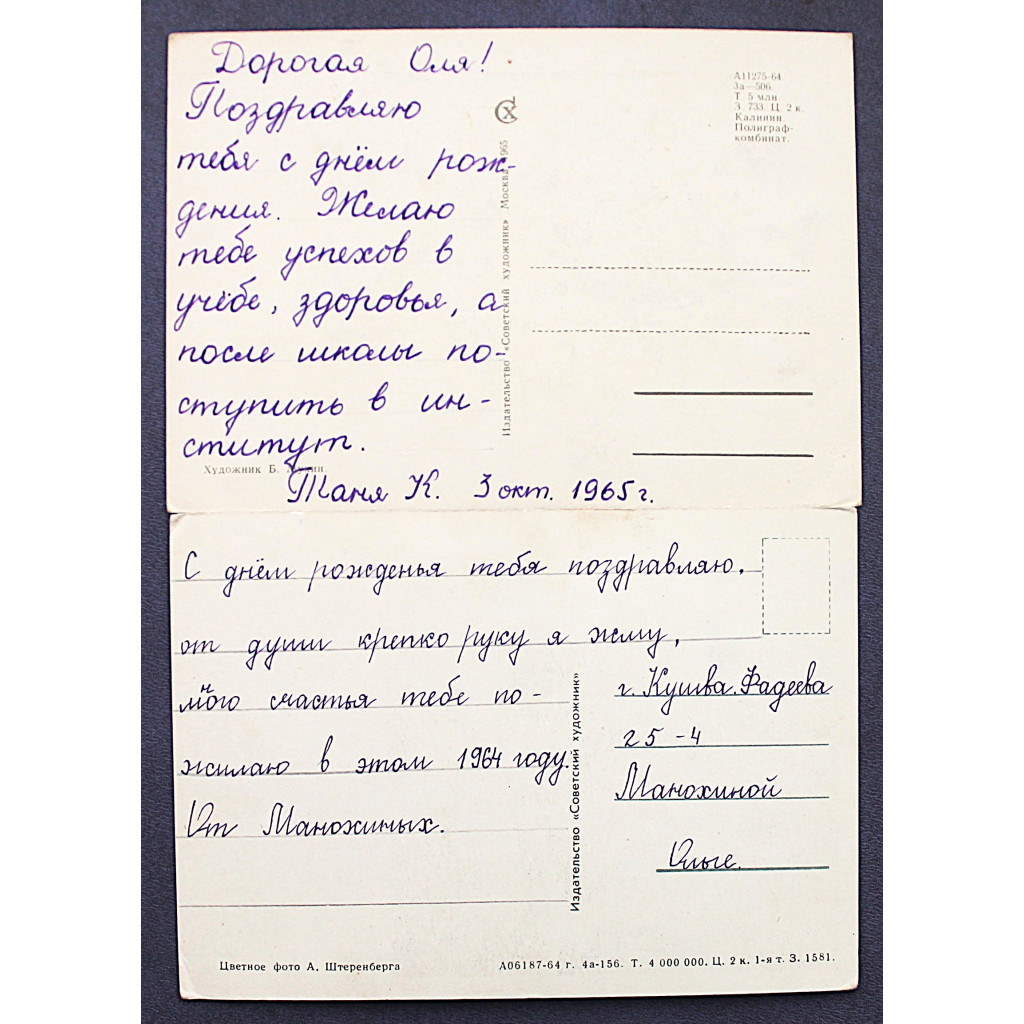 Дорогая Оля!
Поздравляю
тебя с днём рож-
дения. Желаю
тебе успехов в
учёбе, здоровья, а
после школы по-
ступить в ин-
ститут.
Таня К. 3 окт. 1965 г.
Художник Б.
Издательство «Советский художник» Москва 1965
А11275-64
3а—506.
Т. 5 млн
З. 733. Ц. 2 к.
Калинин
Полиграф-
комбинат.
С днём рожденья тебя поздравляю,
от души крепко руку я жму,
много счастья тебе по-
жилаю в этом 1964 году.
От Манохиных.
Издательство «Советский художник»
г. Кушва. Фадеева
25-4
Манохиной
Ольге.
Цветное фото А. Штеренберга
А06187-64 г. 4а-156. Т. 4 000 000. Ц. 2 к. 1-я т. З. 1581.